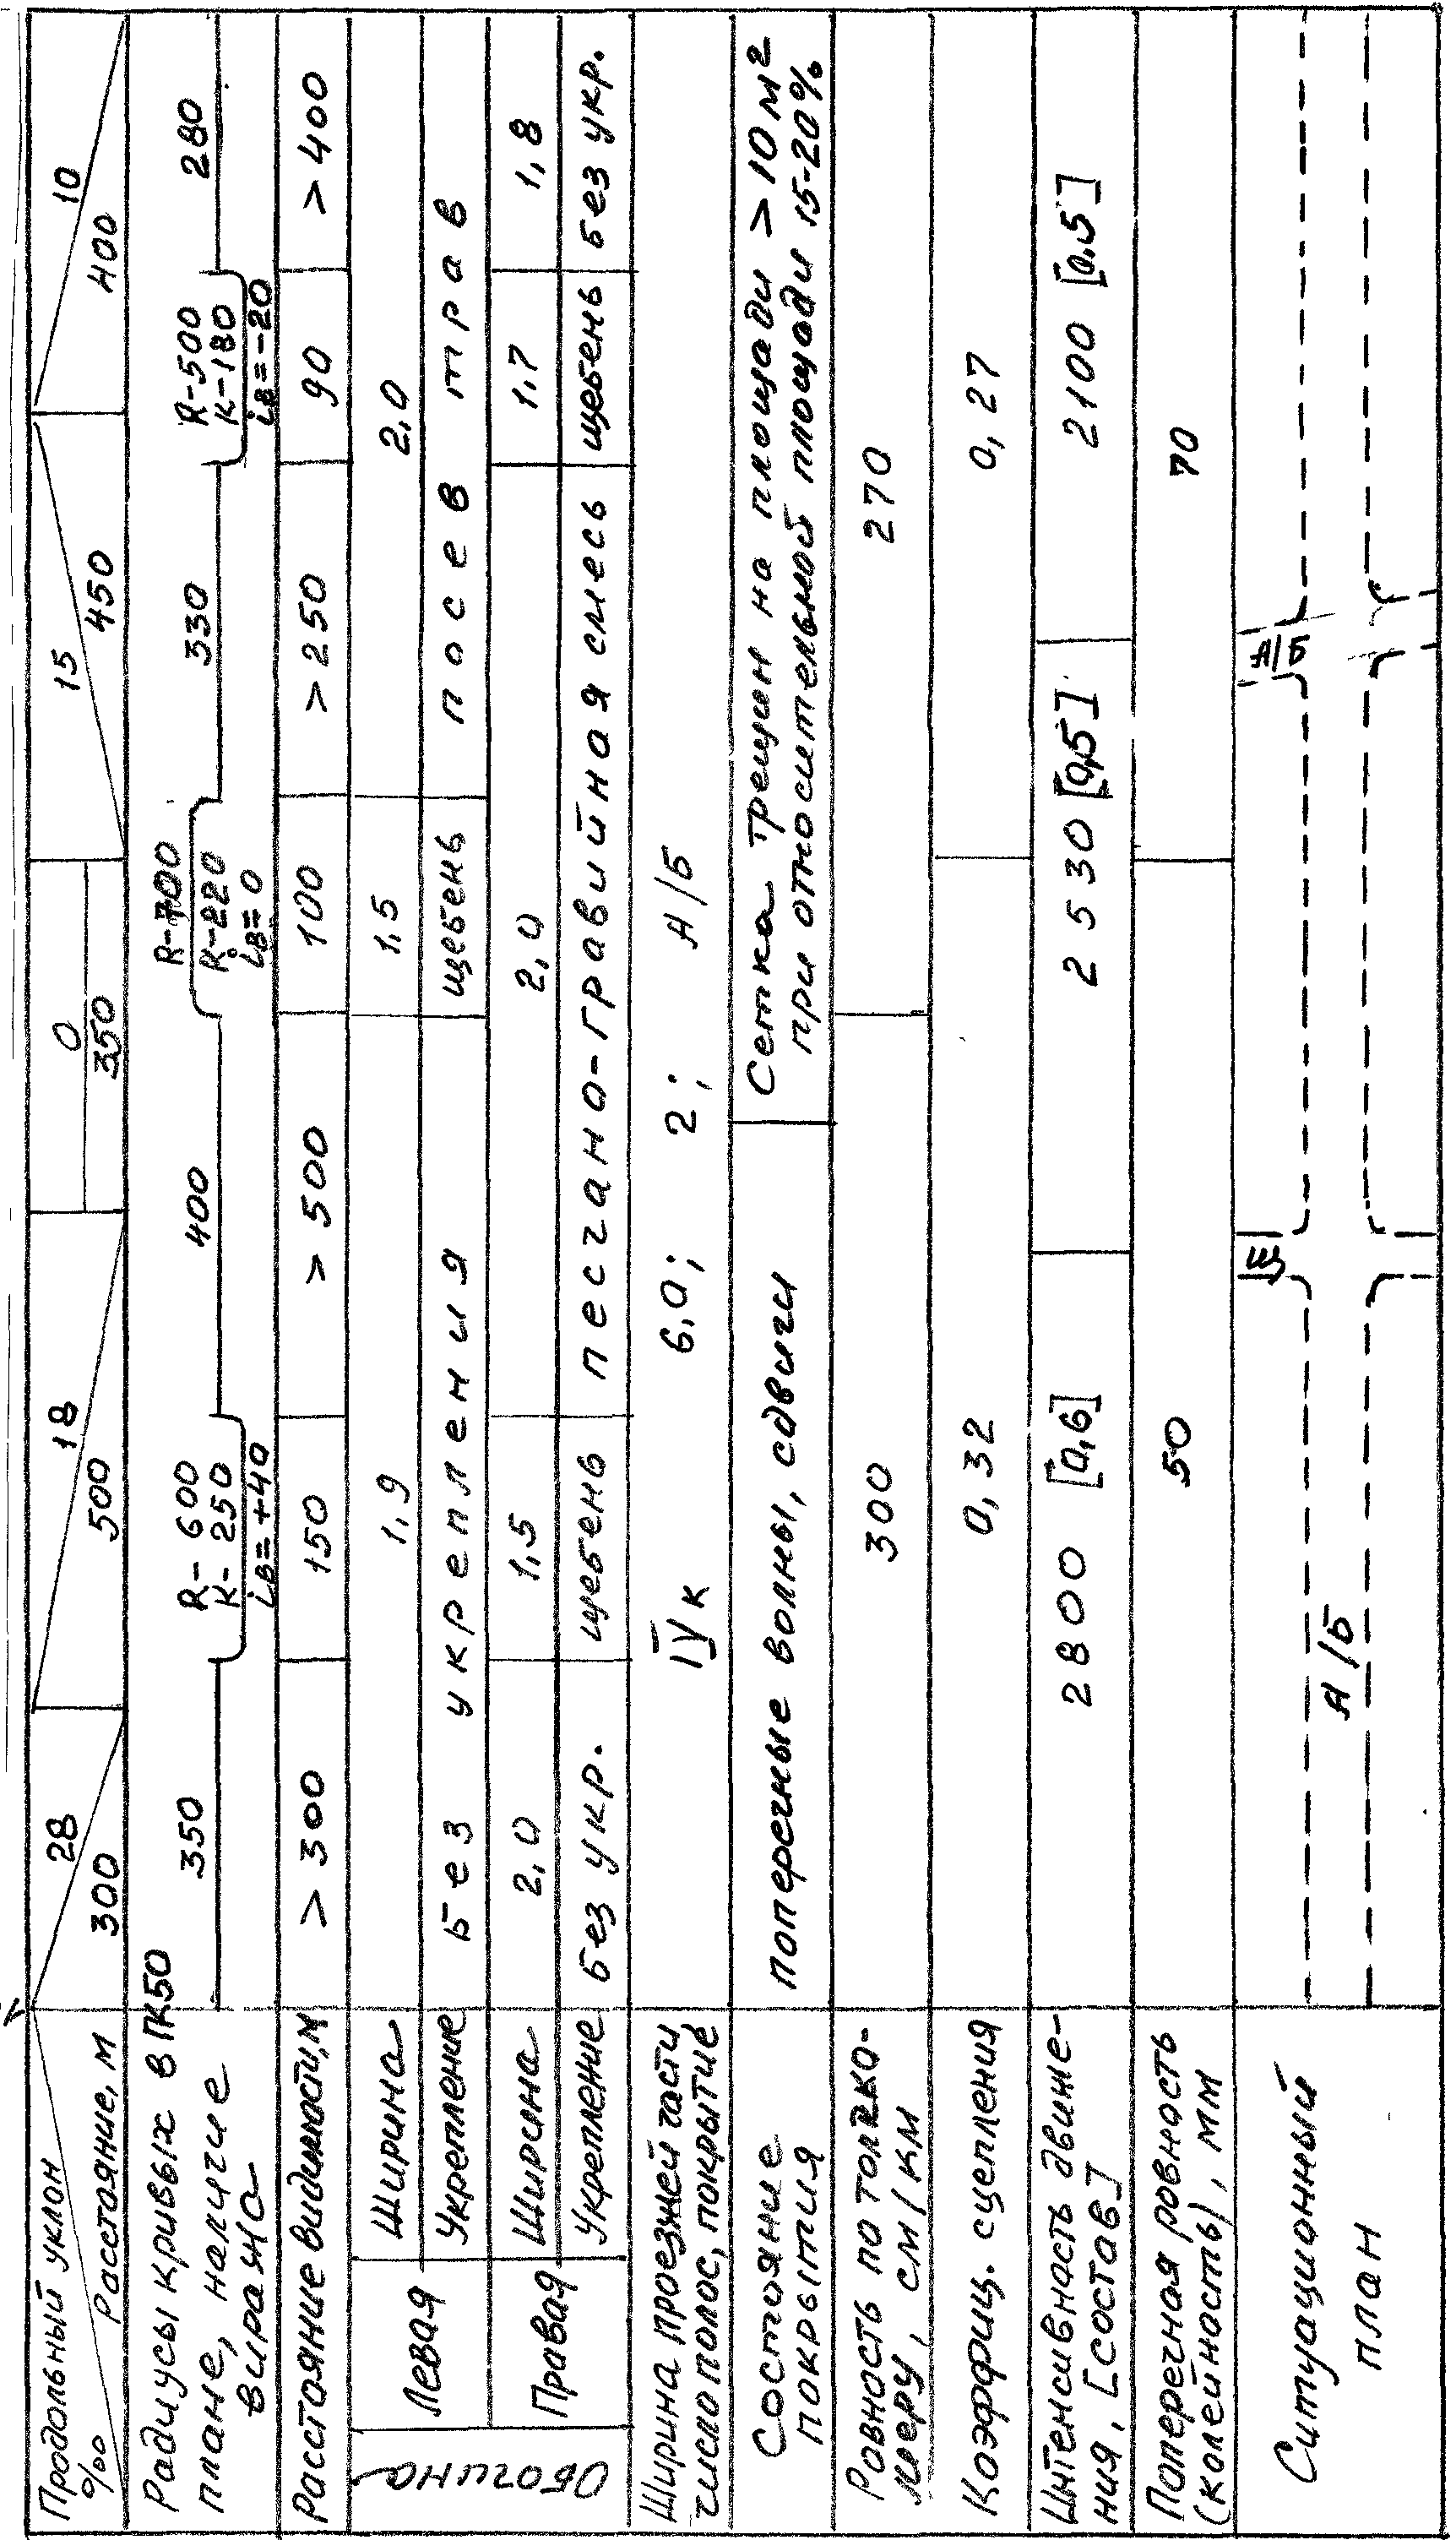 Продольный уклон
‰
Расстояние, м
28
300
18
500
0
350
15
450
10
400
Радиусы кривых в
плане, наличие
виража
ПК50
350
R- 600
К- 250
iв=+40
400
R-700
К-220
iв=0
330
R-500
К-180
iв=-20
280
Расстояние видимости,м
>300
150
>500
100
>250
90
>400
Обочина
Левая
Ширина
1,9
1,5
2,0
Укрепление
без укрепления
щебень
посев трав
Правая
Ширина
2,0
1,5
2,0
1,7
1,8
Укрепление
без укр.
щебень
песчано-гравийная смесь
щебень
без укр.
Ширина проезжей части,
число полос, покрытие
IVк 6,0; 2; А/Б
Состояние
покрытия
поперечные волны, сдвиги
Сетка трещин на площади >10м²
при относительной площади 15-20%
Ровность по толчко-
меру, см/км
300
270
Коэффиц. сцепления
0,32
0,27
Интенсивность движе-
ния, [состав]
2800 [0,6]
2530 [0,5]
2100 [0,5]
Поперечная ровность
(колейность), мм
50
70
Ситуационный
план
А/Б
Щ
А/Б